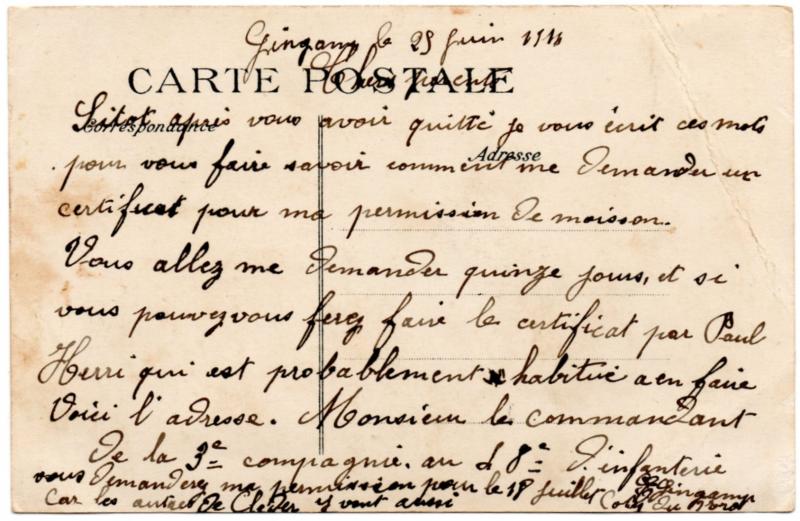 Gingamp le 25 Juin 1911
CARTE POSTALE
Chers parents
Correspondance
Sitot après vous avoir quitté je vous écrit ces mots
Adresse
pour vous faire savoir comment me demander un
certificat pour ma permission de moisson.
Vous allez me demander quinze jours, et si
vous pouvez vous ferez faire le certificat par Paul
Herri qui est probablement habitué a en faire
Voici l'adresse. Monsieur le commandant
de la 3e compagnie au 48e d'infanterie
Gingamp
Cotes du Nord
vous demanderez ma permission pour le 18 juillet
Car les autres de Cleder y vont aussi